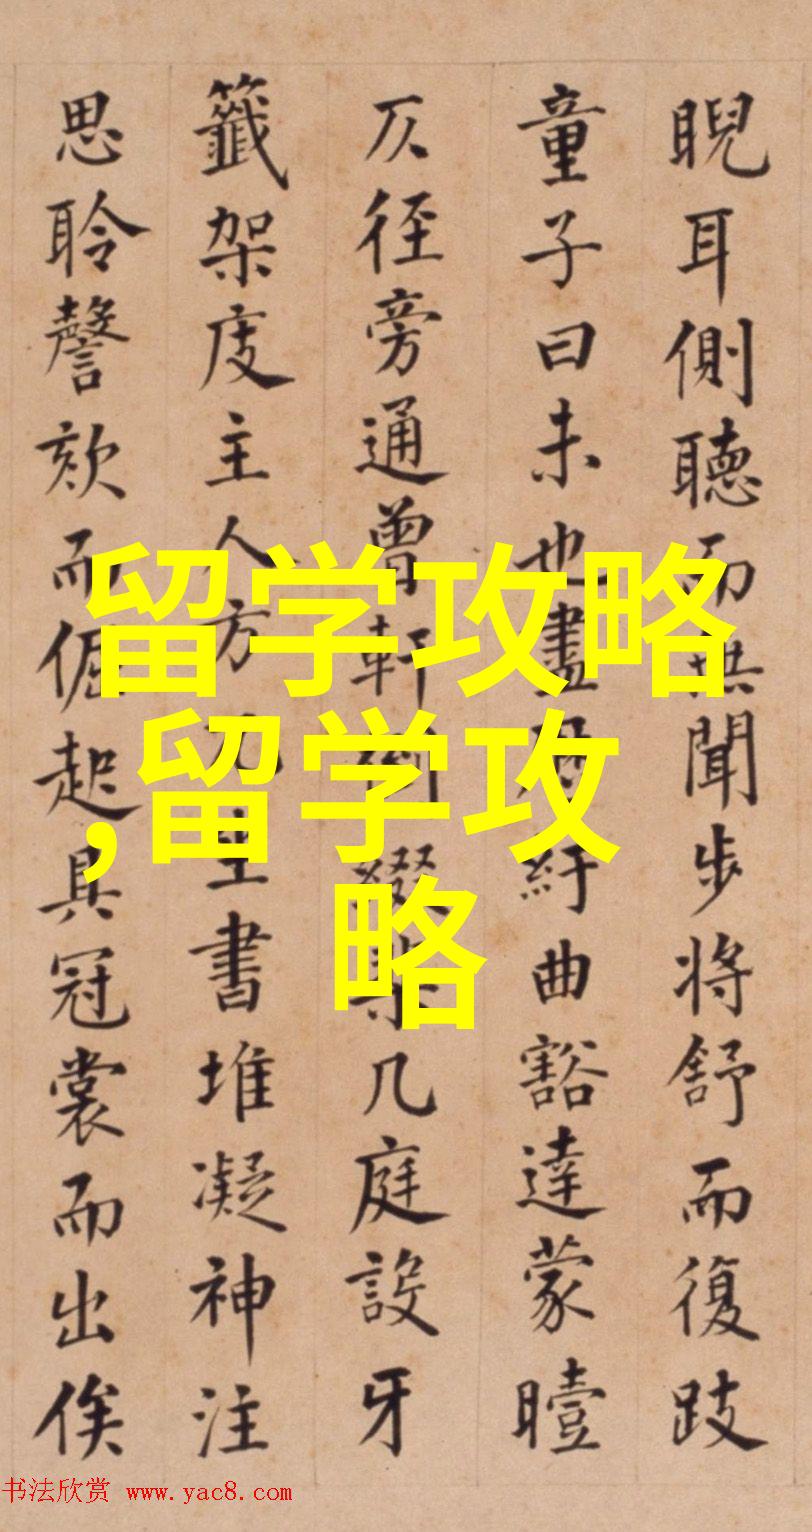 睨耳側聴而無聞步将舒而復跂
童子曰未也盡紆曲豁達蒙曀
仄徑旁通曾軒綴棐几庭設牙
籤架庋主人方兀坐書堆凝神注
思聆謦欬而倔起具冠裳而出俟
留学攻略
,留学攻
略
书法欣赏 www.yac8.com